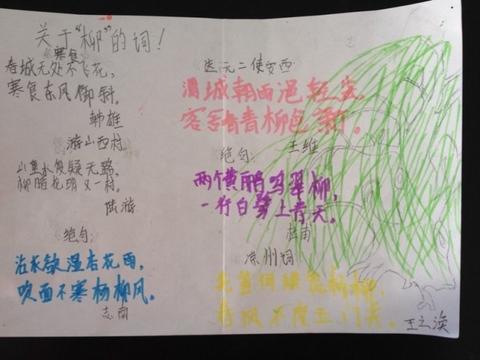 关于“柳”的词！
寒食
春城无处不飞花，
寒食东风御柳斜。
韩雄
游山西村
山重水复疑无路，
柳暗花明又一村。
陆游
绝句：
沾衣欲湿杏花雨，
吹面不寒杨柳风。
志南
送元二使安西
渭城朝雨浥轻尘，
客舍青青柳色新。
王维
绝句：
两个黄鹂鸣翠柳，
一行白鹭上青天。
杜甫
凉州词
羌笛何须怨杨柳，
春风不度玉门关。
王之涣